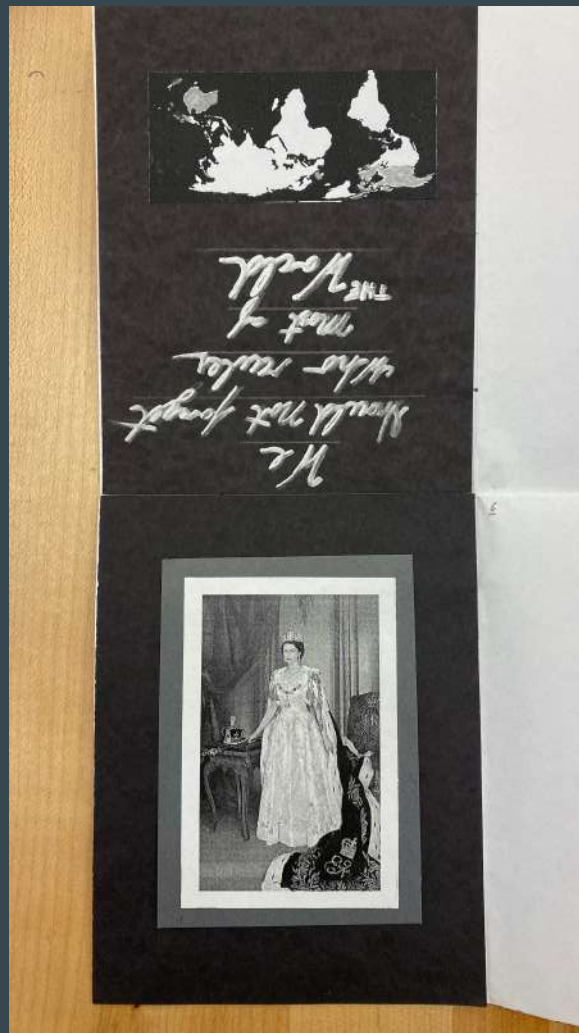 We
should not forget
who rules
most of
THE World
6